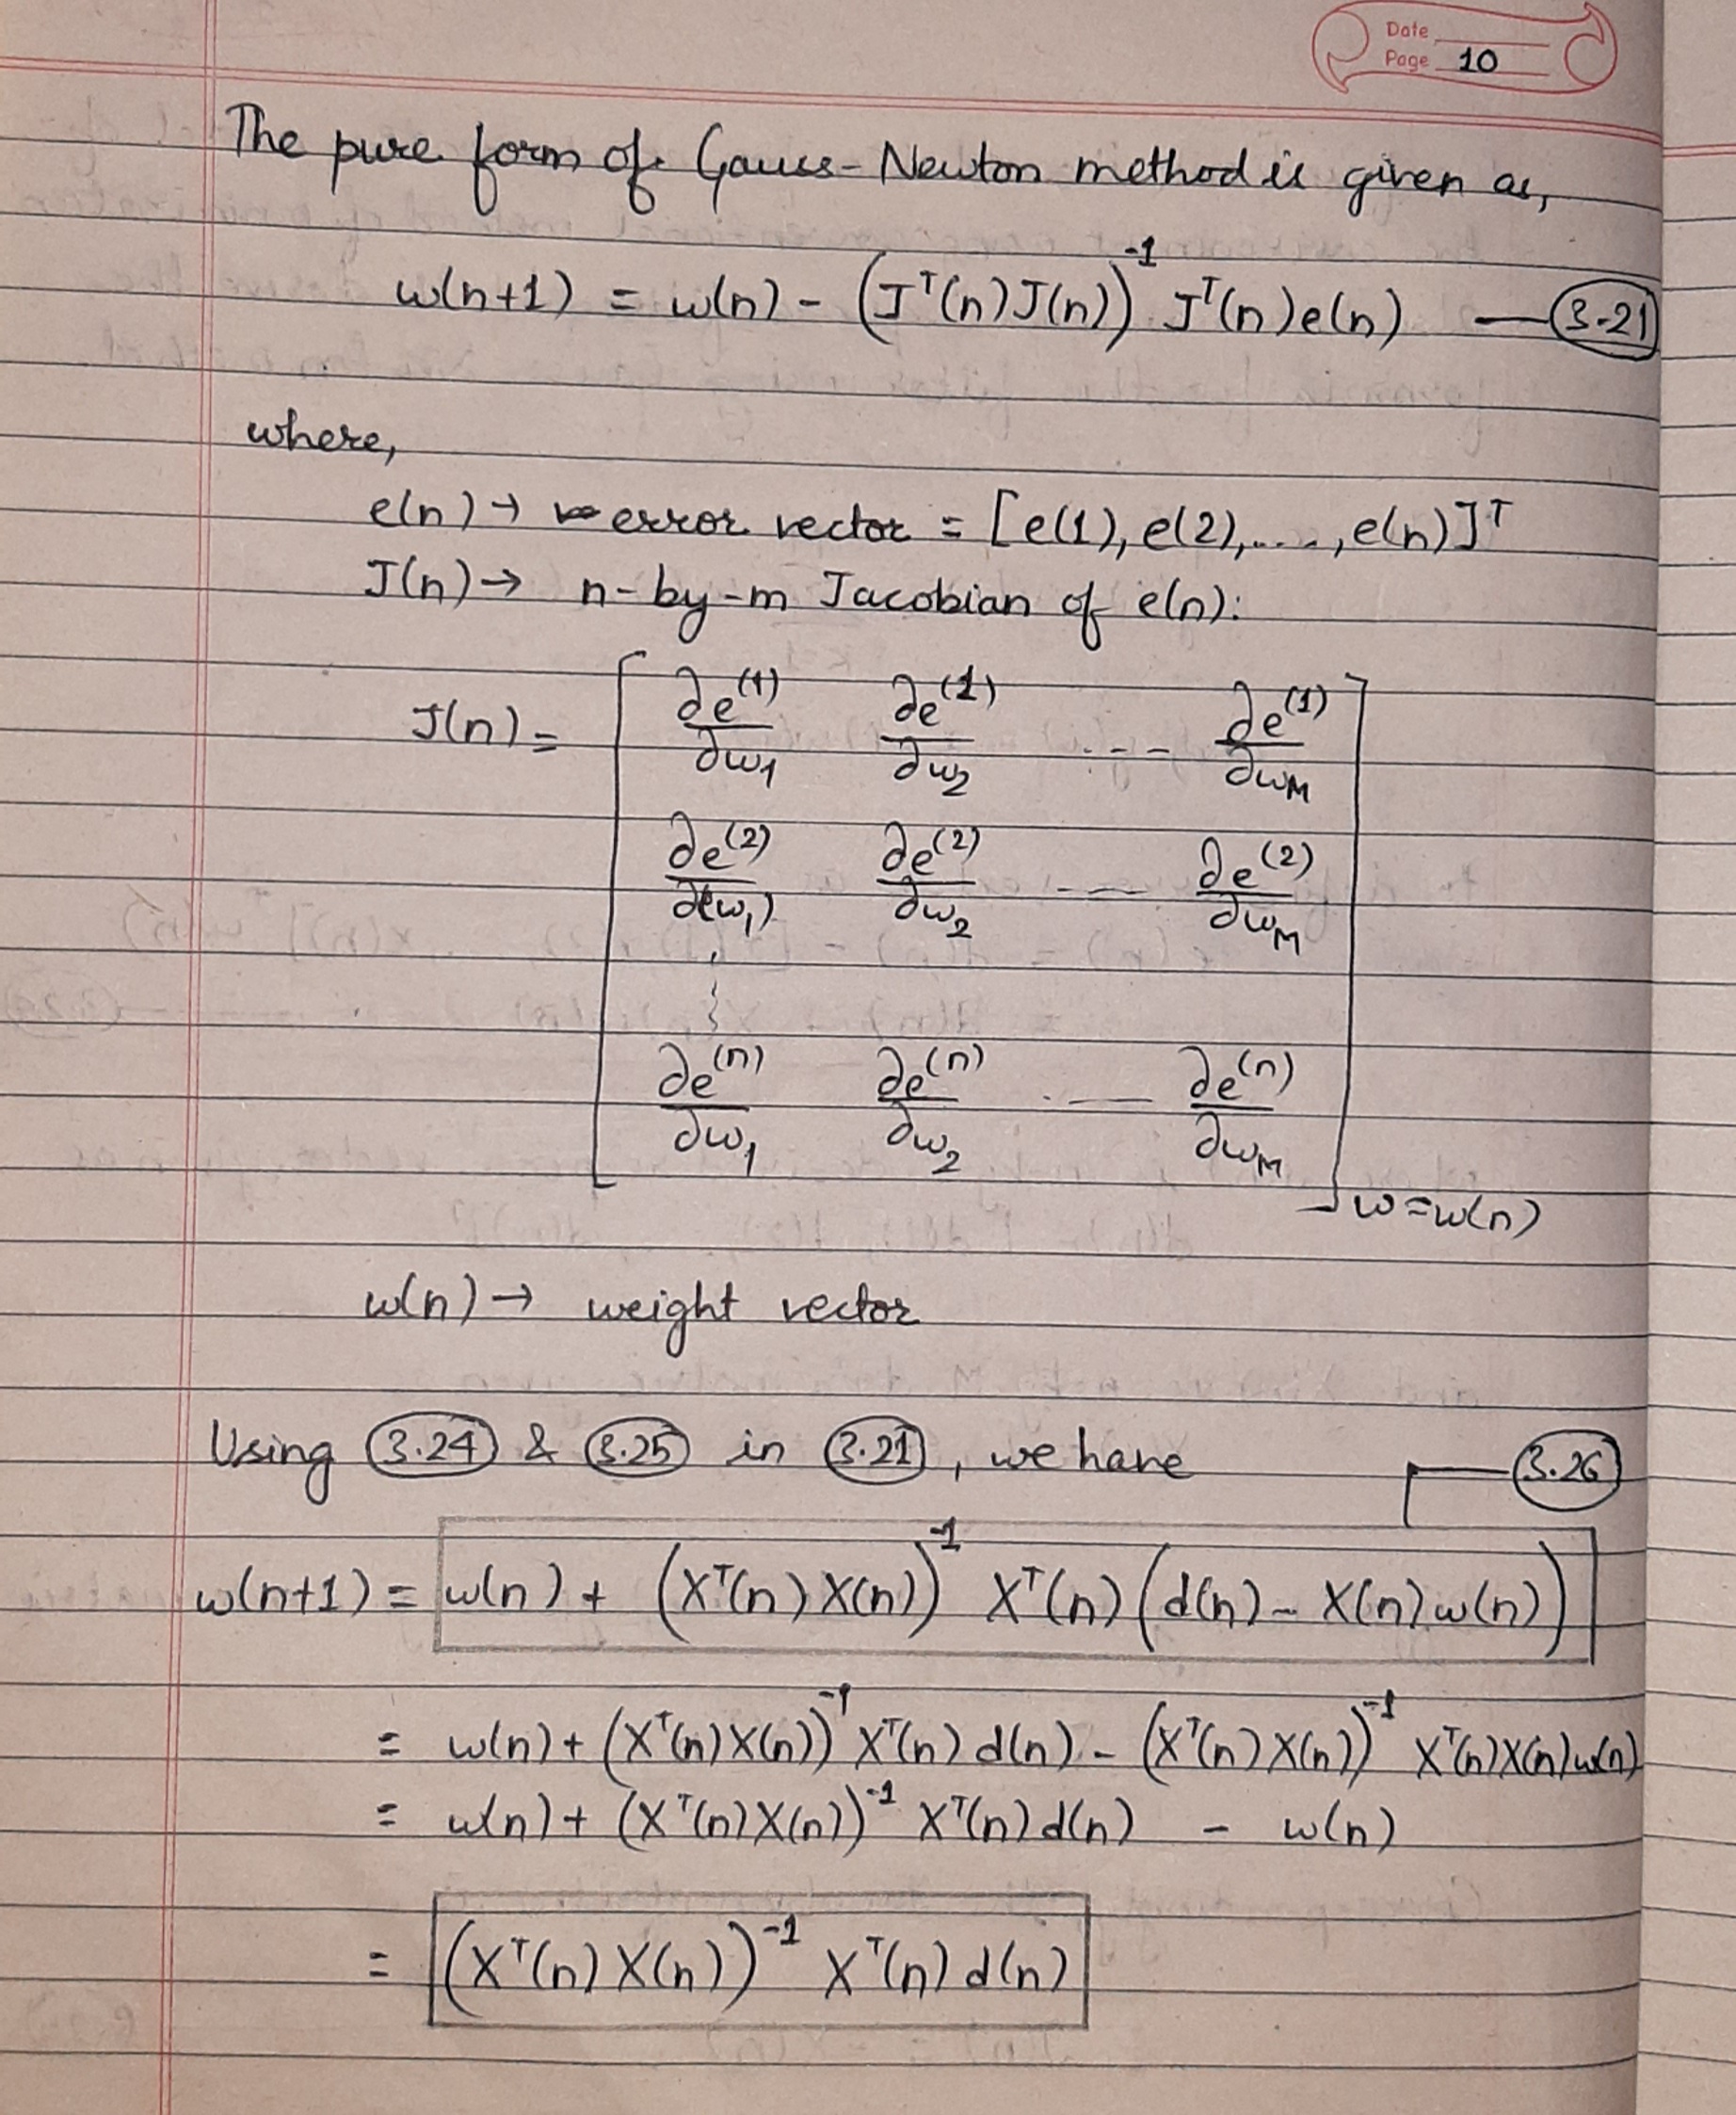 Date
Page 10
The pure form of Gauss-Newton method is given as,
w(n+1) = w(n) - (Jᵀ(n)J(n))⁻¹ Jᵀ(n)e(n) — (3.21)
where,
e(n) → error vector = [e(1), e(2), ...., e(n)]ᵀ
J(n) → n-by-m Jacobian of e(n):
J(n) = [ ∂e(1)/∂w₁ ∂e(1)/∂w₂ ... ∂e(1)/∂w_M
∂e(2)/∂(w₁) ∂e(2)/∂w₂ ... ∂e(2)/∂w_M
⋮
∂e(n)/∂w₁ ∂e(n)/∂w₂ ... ∂e(n)/∂w_M ] w=w(n)
w(n) → weight vector
Using (3.24) & (3.25) in (3.21), we have — (3.26)
w(n+1) = w(n) + (Xᵀ(n)X(n))⁻¹ Xᵀ(n)(d(n) - X(n)w(n))
= w(n) + (Xᵀ(n)X(n))⁻¹ Xᵀ(n)d(n) - (Xᵀ(n)X(n))⁻¹ Xᵀ(n)X(n)w(n)
= w(n) + (Xᵀ(n)X(n))⁻¹ Xᵀ(n)d(n) - w(n)
= (Xᵀ(n)X(n))⁻¹ Xᵀ(n)d(n)